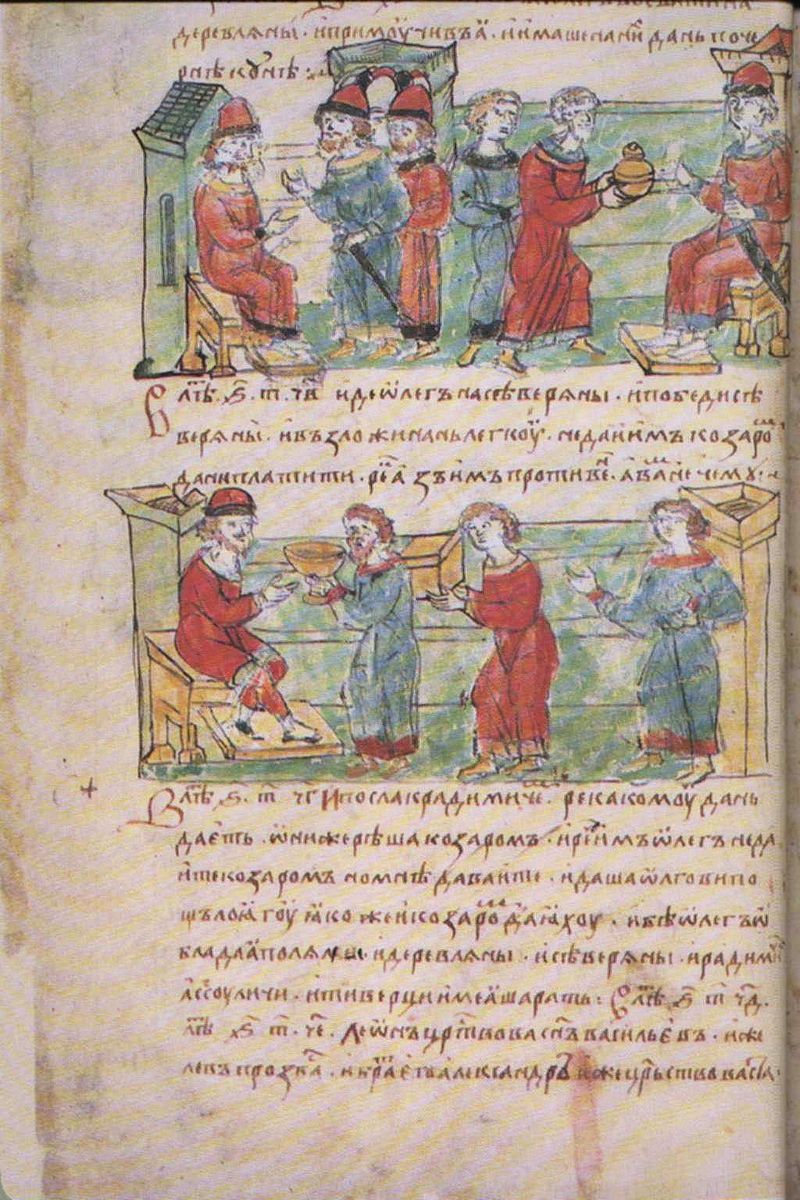 деревлѧны · и примоучивъ ꙗ · и имаше на ни дань по че
рнѣ кꙋнѣ :
В лѣⷮ · ҂ѕ҃ · т҃ · ч҃в иде ѡлегъ на сѣверѧны · и победи сѣ
верѧны · и възложи на нь легкоу · не да и имъ козароⷨ
дани платити · реⷦ҇ а зъ имъ противеⷩ · а ваⷨ не чему :
В лѣⷮ · ҂ѕ҃ · т҃ · ч҃г И посла к радимиче · река комоу дань
даєть · ѡни же рѣша козаромъ · и реⷱ҇ имъ ѡлегъ не да
ите козаромъ но мнѣ даваите · и даша ѡлгови по
щьлоѧгоу ꙗко же и козароⷨ даꙗхоу · и бѣ ѡлегъ ѡ
бладаꙗ полѧны · и деревлѧны · и сѣверѧны · и радими
а с соуличи · и тиверци имеꙗше рать : В лѣⷮ · ҂ѕ҃ · т҃ · ч҃д ·
лѣⷮ · ҂ѕ҃ · т҃ · ч҃е · Леѡнъ црⷭ҇твова сн҃ъ васильєвъ · иже
левъ прозва · и браⷮ єго александръ иже црⷭ҇ьствоваста